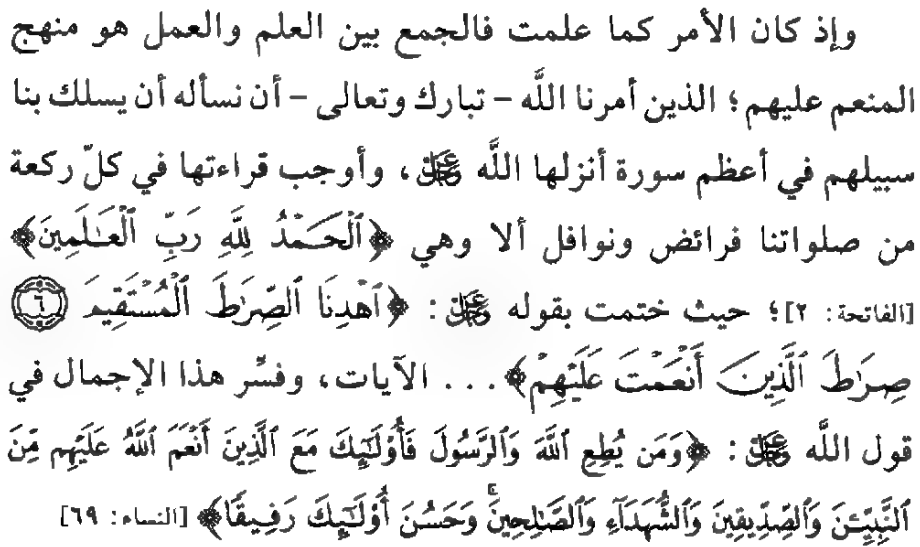 وإذ كان الأمر كما علمت فالجمع بين العلم والعمل هو منهج
المنعم عليهم؛ الذين أمرنا اللَّه – تبارك وتعالى – أن نسأله أن يسلك بنا
سبيلهم في أعظم سورة أنزلها اللَّه عز وجل، وأوجب قراءتها في كلّ ركعة
من صلواتنا فرائض ونوافل ألا وهي ﴿ٱلْحَمْدُ لِلَّهِ رَبِّ ٱلْعَـٰلَمِينَ﴾
[الفاتحة: ٢]؛ حيث ختمت بقوله عز وجل: ﴿ٱهْدِنَا ٱلصِّرَٰطَ ٱلْمُسْتَقِيمَ ٦
صِرَٰطَ ٱلَّذِينَ أَنْعَمْتَ عَلَيْهِمْ﴾... الآيات، وفسِّر هذا الإجمال في
قول اللَّه عز وجل: ﴿وَمَن يُطِعِ ٱللَّهَ وَٱلرَّسُولَ فَأُو۟لَـٰٓئِكَ مَعَ ٱلَّذِينَ أَنْعَمَ ٱللَّهُ عَلَيْهِم مِّنَ
ٱلنَّبِيِّـۧنَ وَٱلصِّدِّيقِينَ وَٱلشُّهَدَآءِ وَٱلصَّـٰلِحِينَ ۚ وَحَسُنَ أُو۟لَـٰٓئِكَ رَفِيقًا﴾ [النساء: ٦٩]